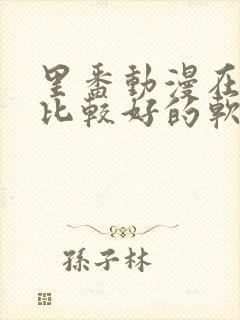 里番動漫在
比較好的軟
孫子林